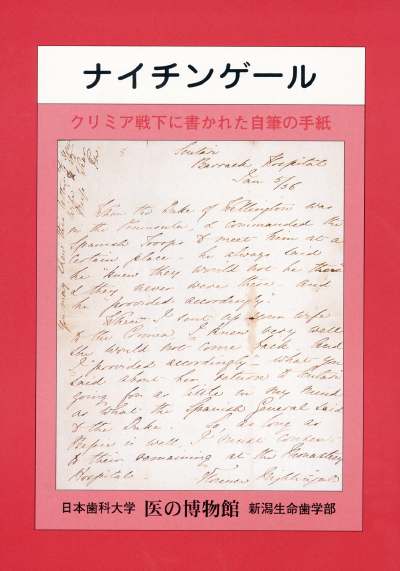 ナイチンゲール
クリミア戦下に書かれた自筆の手紙
Scutari
Barrack Hospital
Jan 5/56
When the Duke of Wellington was
in the Peninsula, & commanded the
Spanish Troops to meet him at a
certain place - he always said
he "knew they would not be there
& they never were there - and
he provided accordingly"
When I sent up your wife
to the Crimea, I knew very well
she would not come back and
I "provided accordingly" - what you
said about her return to Scutari
going for as little in my mind
as what the Spanish General said
to the Duke. So, as long as
is well, I must consent
to their remaining at the Monastery
Hospital
Florence Nightingale
You may show this letter
日本歯科大学 医の博物館 新潟生命歯学部